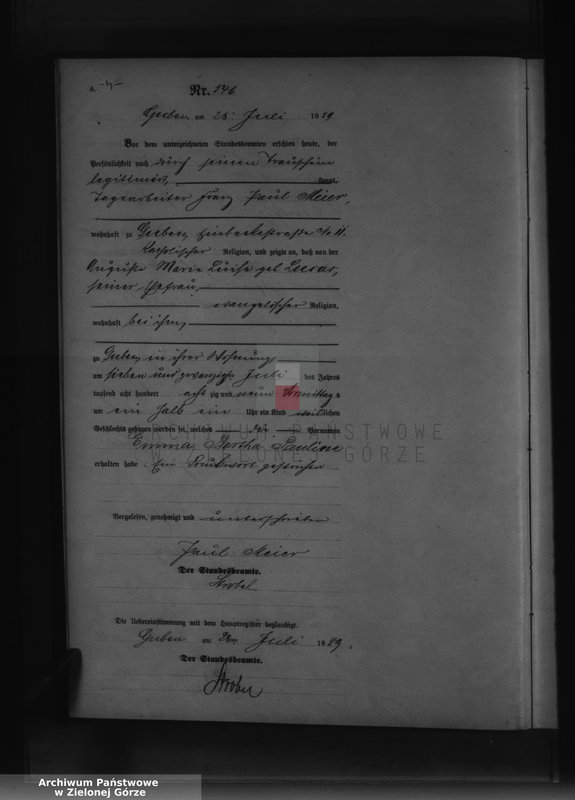 A.
Nr. 546
Guben am 28. Juli 1889
Vor dem unterzeichneten Standesbeamten erschien heute, der
Persönlichkeit nach durch seinen Trauschein
legitimirt, kannt,
Tagearbeiter Franz Paul Meier,
wohnhaft zu Guben, No 11.
katholischer Religion, und zeigte an, daß von der
Auguste Marie Luise geb. Lucas,
seiner Ehefrau,
evangelischer Religion,
wohnhaft bei ihm,
zu Guben, in ihrer Wohnung
am sieben und zwanzigten Juli des Jahres
tausend acht hundert acht zig und neun Vormittag s
um ein halb ein Uhr ein Kind weiblichen
Geschlechts geboren worden sei, welches die Vornamen
Emma Bertha Pauline
erhalten habe. Ein Druckwort gestrichen
Vorgelesen, genehmigt und unterschrieben
Paul Meier
Der Standesbeamte.
Strobel
Die Uebereinstimmung mit dem Hauptregister beglaubigt.
Guben am 28ten Juli 1889
Der Standesbeamte.
Strobel
ARCHIWUM PAŃSTWOWE
W ZIELONEJ GÓRZE
Archiwum Państwowe
w Zielonej Górze